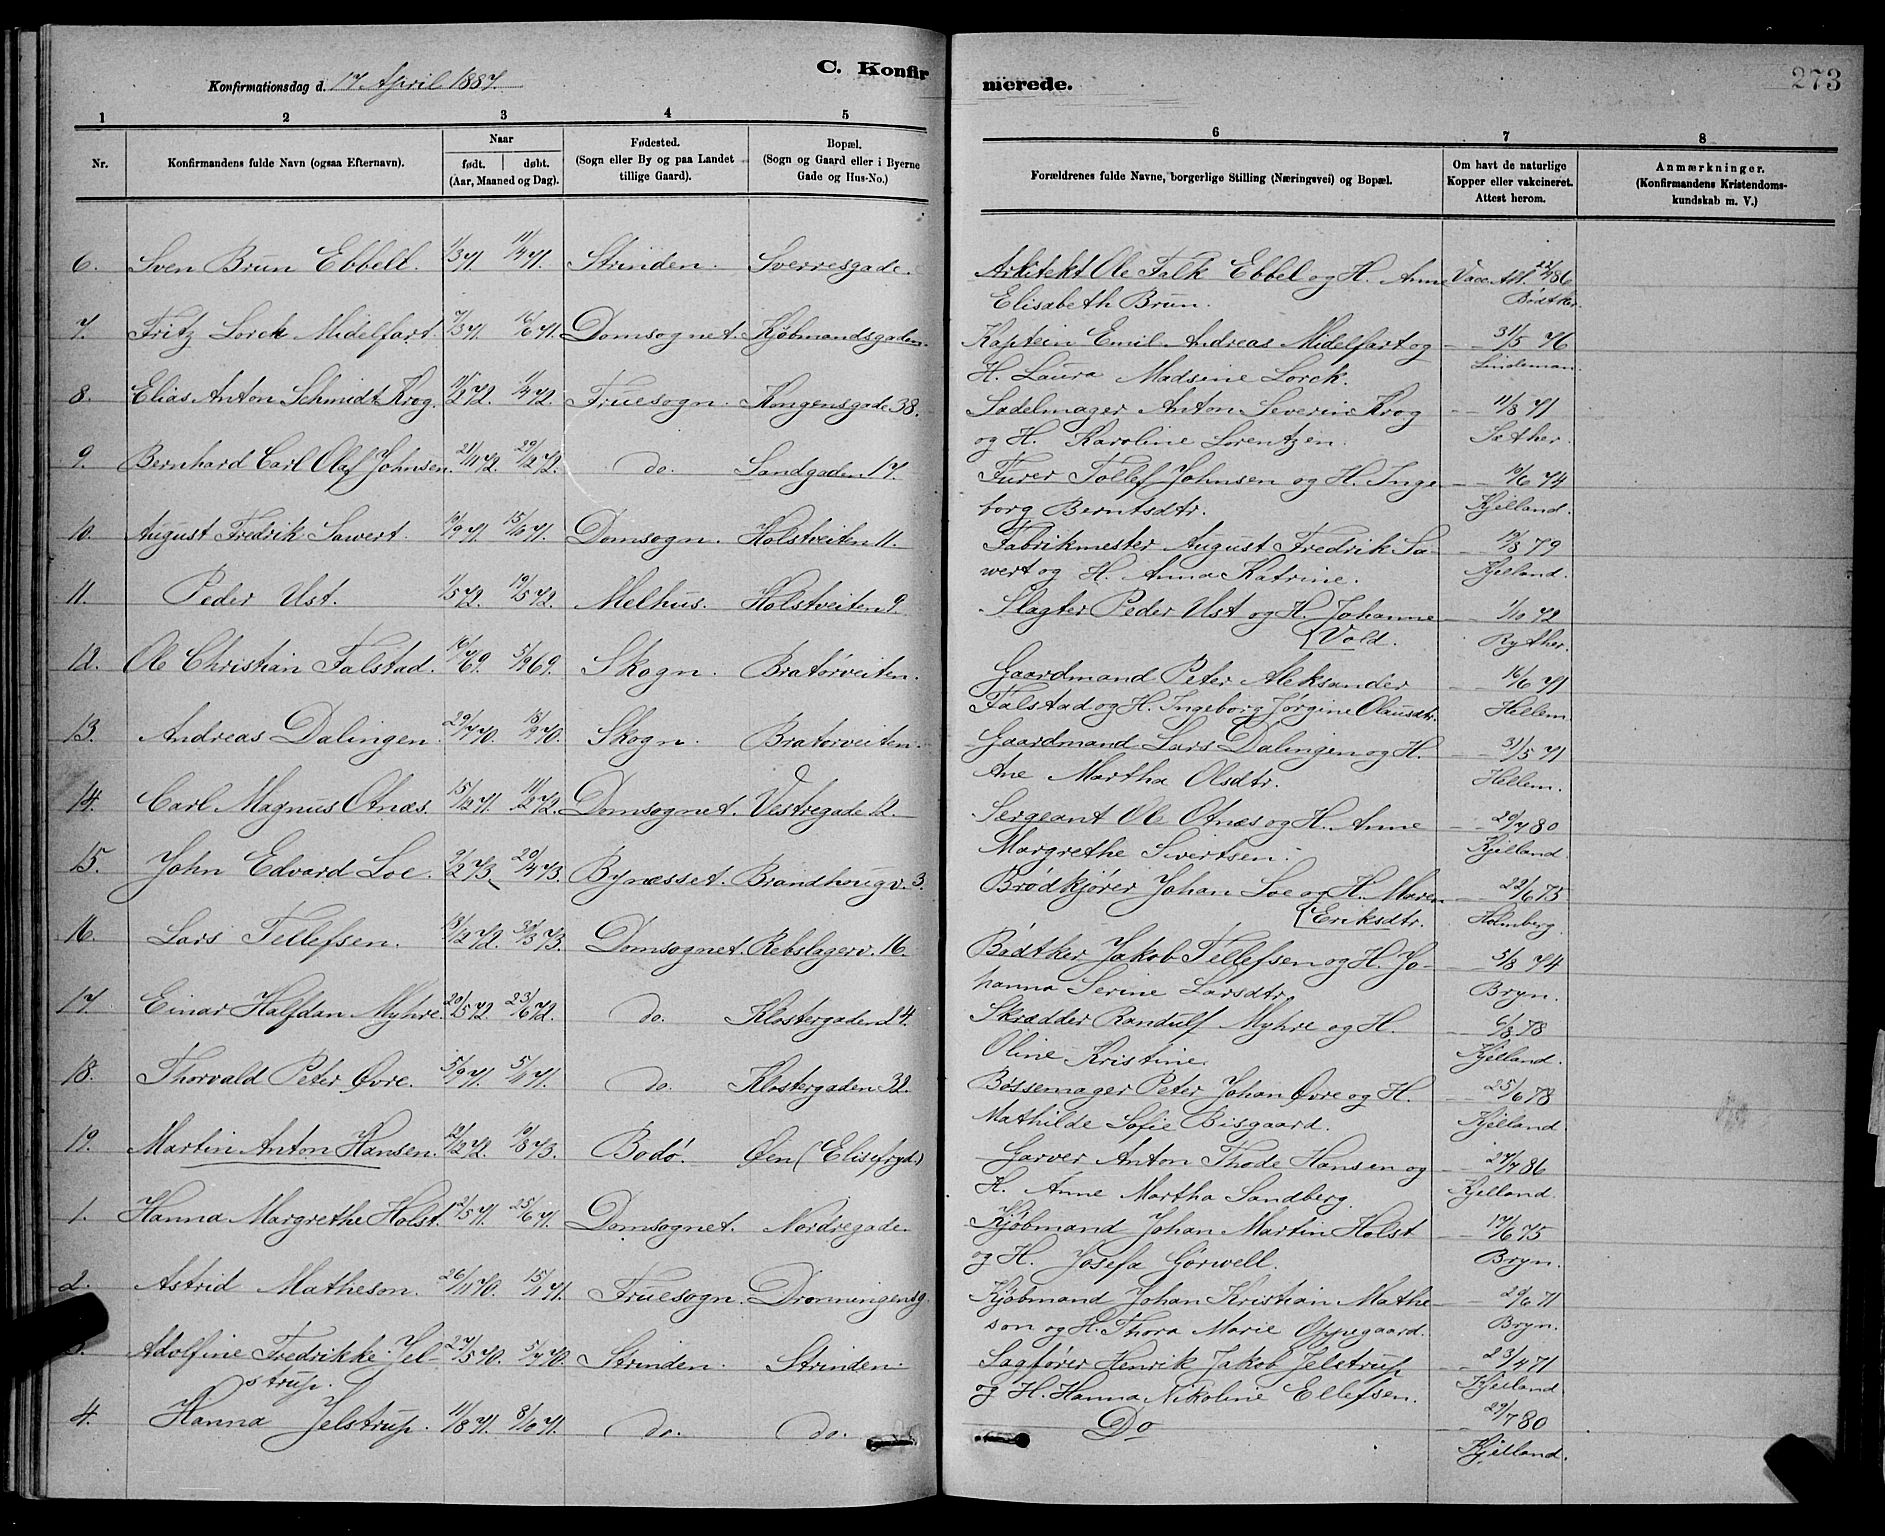 Konfirmationsdag d. 17 April 1887.
C. Konfir
merede.
273
1 2 3 4 5 6 7 8
Nr.
Konfirmandens fulde Navn (ogsaa Efternavn).
Naar
født. døbt.
(Aar, Maaned og Dag).
Fødested.
(Sogn eller By og paa Landet
tillige Gaard).
Bopæl.
(Sogn og Gaard eller i Byerne
Gade og Hus-No.)
Forældrenes fulde Navne, borgerlige Stilling (Næringsvei) og Bopæl.
Om havt de naturlige
Kopper eller vakcineret.
Attest herom.
Anmærkninger.
(Konfirmandens Kristendoms-
kundskab m. V.)
6. Sven Brun Ebbell. Strinden. Sverresgade. Arkitekt Ole Falk Ebbel og H. Anne Vacc. Att.
Elisabeth Brun. Bødtker.
7. Fritz Lorck Midelfart. Domsognet. Kjøbmandsgaden. Kaptein Emil Andreas Midelfart og 31/5 76
H. Laura Madsine Lorck. Lindeman.
8. Elias Anton Schmidt Krog. Fruesogn. Kongensgade 38. Sadelmager Anton Severin Krog 11/8 71
og H. Karoline Lorentzen. Sæther.
9. Bernhard Carl Olaf Johnsen. 21/11 72. 29/12 72. do. Sandgaden 17. Furer Tollef Johnsen og H. Inge 10/6 74
borg Berntsdtr. Kjelland.
10. August Fredrik Sawert. Domsogn. Holstveiten 11. Fabrikmester August Fredrik Sa-
wert og H. Anna Katrine. Kjelland.
11. Peder Ust. 1/5 72. 19/5 72. Melhus. Holstveiten 9. Slagter Peder Ust og H. Johanne 1/10 72
(Vold. Ryther.
12. Ole Christian Falstad. 5/9 69. Skogn. Bratørveiten. Gaardmand Peter Aleksander 16/6 71
Falstad og H. Ingeborg Jørgine Olausdtr. Hellem.
13. Andreas Dalingen. 29/7 70. 18/9 70. Skogn. Bratørveiten. Gaardmand Lars Dalingen og H. 31/5 71
Ane Martha Olsdtr. Hellem.
14. Carl Magnus Otnæs. 15/12 71. 11/2 72. Domsognet. Vestregade 12. Sergeant Ole Otnæs og H. Anne 20/7 80
Margrethe Sivertsen. Kjelland.
15. John Edvard Loe. 9/2 73. 20/4 73. Bynæsset. Brandhougv. 3. Brødkjører Johan Loe og H. Maren 22/6 75
(Eriksdtr. Holmberg.
16. Lars Tellefsen. 18/12 72. 30/3 73. Domsognet. Rebslagerv. 16. Bødtker Jakob Tellefsen og H. Jo- 5/8 74
hanna Serine Larsdtr. Bryn.
17. Einar Halfdan Myhre. 20/5 72. 23/6 72. do. Klostergaden 24. Skrædder Randulf Myhre og H. 6/8 78
Oline Kristine. Kjelland.
18. Thorvald Peter Øvre. 5/9 71. 5/11 71. do. Klostergaden 32. Bøssemager Peter Johan Øvre og H. 25/6 78
Mathilde Sofie Bisgaard. Kjelland.
19. Martin Anton Hansen. 10/8 73. Bodø. Øen (Elisefryd.) Garver Anton Thode Hansen og 27/7 86
H. Anne Martha Sandberg. Kjelland.
1. Hanna Margrethe Holst. 12/5 71. 25/6 71. Domsognet. Nordregade. Kjøbmand Johan Martin Holst 17/6 75
og H. Josefa Gørwell. Bryn.
2. Astrid Matheson. 26/11 70. 15/1 71. Fruesogn. Dronningensg. Kjøbmand Johan Kristian Mathe 20/6 71
son og H. Thora Marie Oppegaard. Bryn.
3. Adolfine Fredrikke Jel- 27/5 70. 5/7 70. Strinden. Strinden. Sagfører Henrik Jakob Jelstrup 23/4 71
strup. og H. Hanna Nikoline Ellefsen. Kjelland.
4. Hanna Jelstrup. 11/8 71. 8/10 71. do. do. Do 29/7 80
Kjelland.